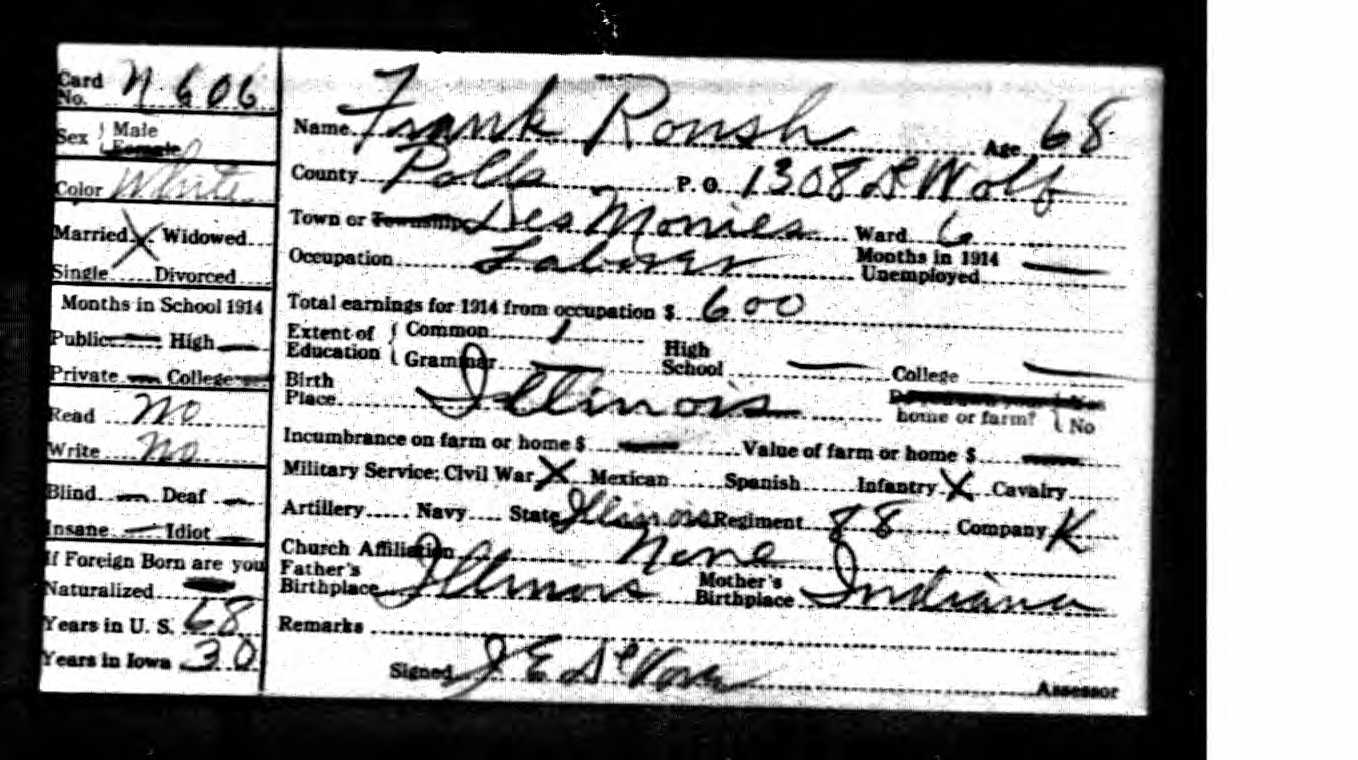 Card No. N 606
Sex Male Female
Color White
Married X Widowed
Single Divorced
Months in School 1914
Public — High —
Private — College —
Read No
Write No
Blind — Deaf —
Insane — Idiot —
If Foreign Born are you
Naturalized —
Years in U. S. 68
Years in Iowa 30
Name Frank Roush Age 68
County Polk P. O. 1308 De Wolf
Town or Township Des Monies Ward 6
Occupation Laborer Months in 1914 Unemployed —
Total earnings for 1914 from occupation $ 600
Extent of Education Common 1
Grammar — High School — College —
Birth Place Illinois home or farm? Yes No
Incumbrance on farm or home $ — Value of farm or home $ —
Military Service: Civil War X Mexican Spanish Infantry X Cavalry
Artillery Navy State Illinois Regiment 88 Company K
Church Affiliation None
Father's Birthplace Illinois Mother's Birthplace Indiana
Remarks
Signed J E DeVore Assessor